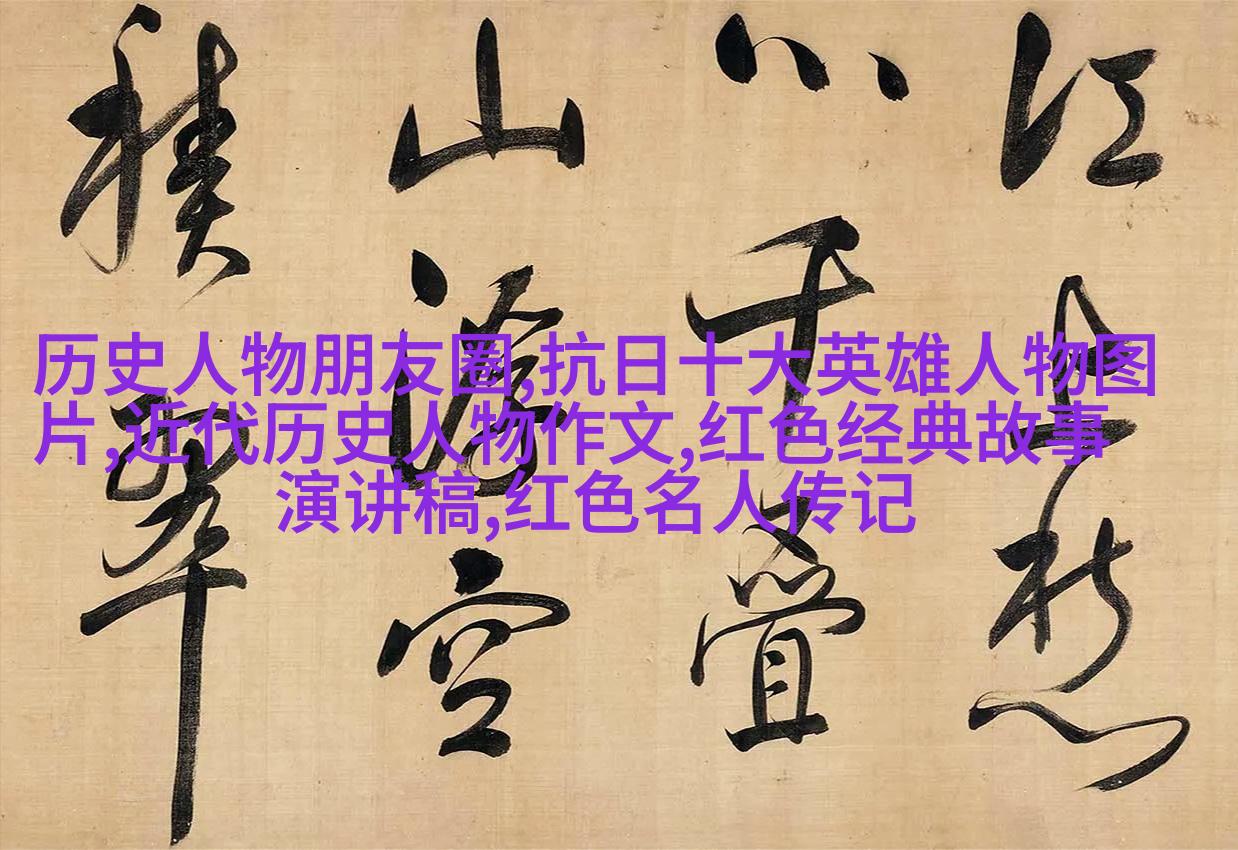 历史人物朋友圈,抗日十大英雄人物图
片,近代历史人物作文,红色经典故事
演讲稿,红色名人传记
江上愁
心千疊
山浮空
積翠